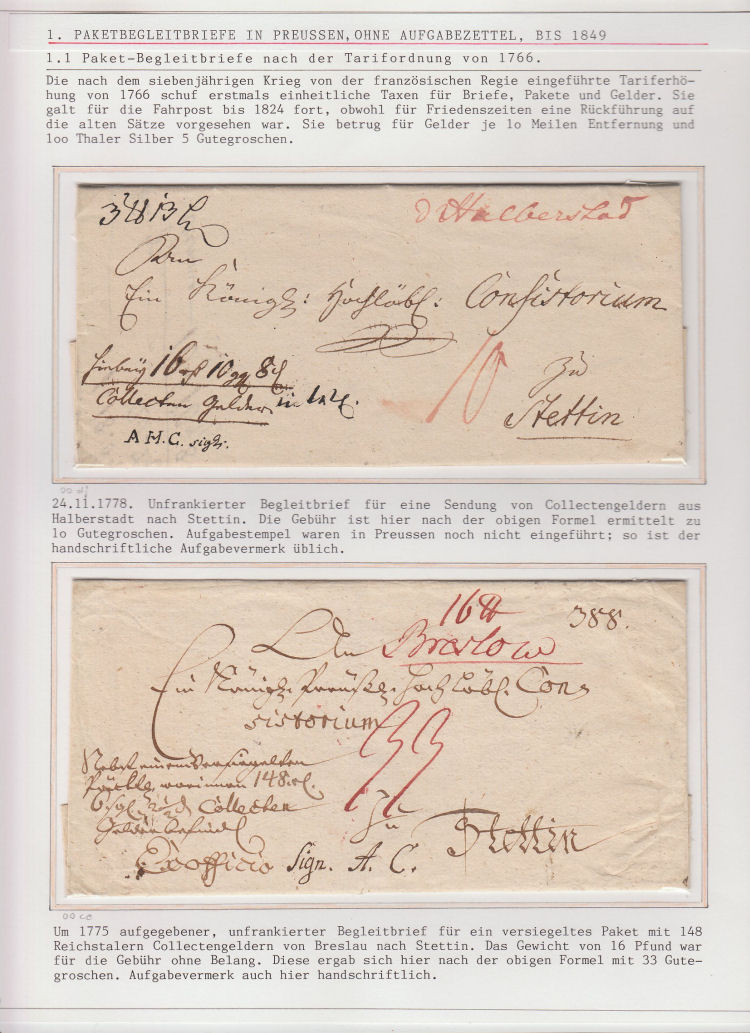 1. PAKETBEGLEITBRIEFE IN PREUSSEN, OHNE AUFGABEZETTEL, BIS 1849
1.1 Paket-Begleitbriefe nach der Tarifordnung von 1766.
Die nach dem siebenjährigen Krieg von der französischen Regie eingeführte Tariferhö-
hung von 1766 schuf erstmals einheitliche Taxen für Briefe, Pakete und Gelder. Sie
galt für die Fahrpost bis 1824 fort, obwohl für Friedenszeiten eine Rückführung auf
die alten Sätze vorgesehen war. Sie betrug für Gelder je 1o Meilen Entfernung und
1oo Thaler Silber 5 Gutegroschen.
Halberstad
Ein Königl: Hochlöbl: Consistorium
hiebey 16 10 gg 8
Collecten Gelder in
10
zu
Stettin
A H.C. sigt.
24.11.1778. Unfrankierter Begleitbrief für eine Sendung von Collectengeldern aus
Halberstadt nach Stettin. Die Gebühr ist hier nach der obigen Formel ermittelt zu
1o Gutegroschen. Aufgabestempel waren in Preussen noch nicht eingeführt; so ist der
handschriftliche Aufgabevermerk üblich.
16 388.
An Breslow
Ein Königl. Preußl. Hochlöbl. Con-
sistorium
33
Nebst einem versiegelten
Päcktl. worinnen 148
Collecten
Gelder befindl.
zu
Stettin
Ex officio Sign. A. C.
Um 1775 aufgegebener, unfrankierter Begleitbrief für ein versiegeltes Paket mit 148
Reichstalern Collectengeldern von Breslau nach Stettin. Das Gewicht von 16 Pfund war
für die Gebühr ohne Belang. Diese ergab sich hier nach der obigen Formel mit 33 Gute-
groschen. Aufgabevermerk auch hier handschriftlich.